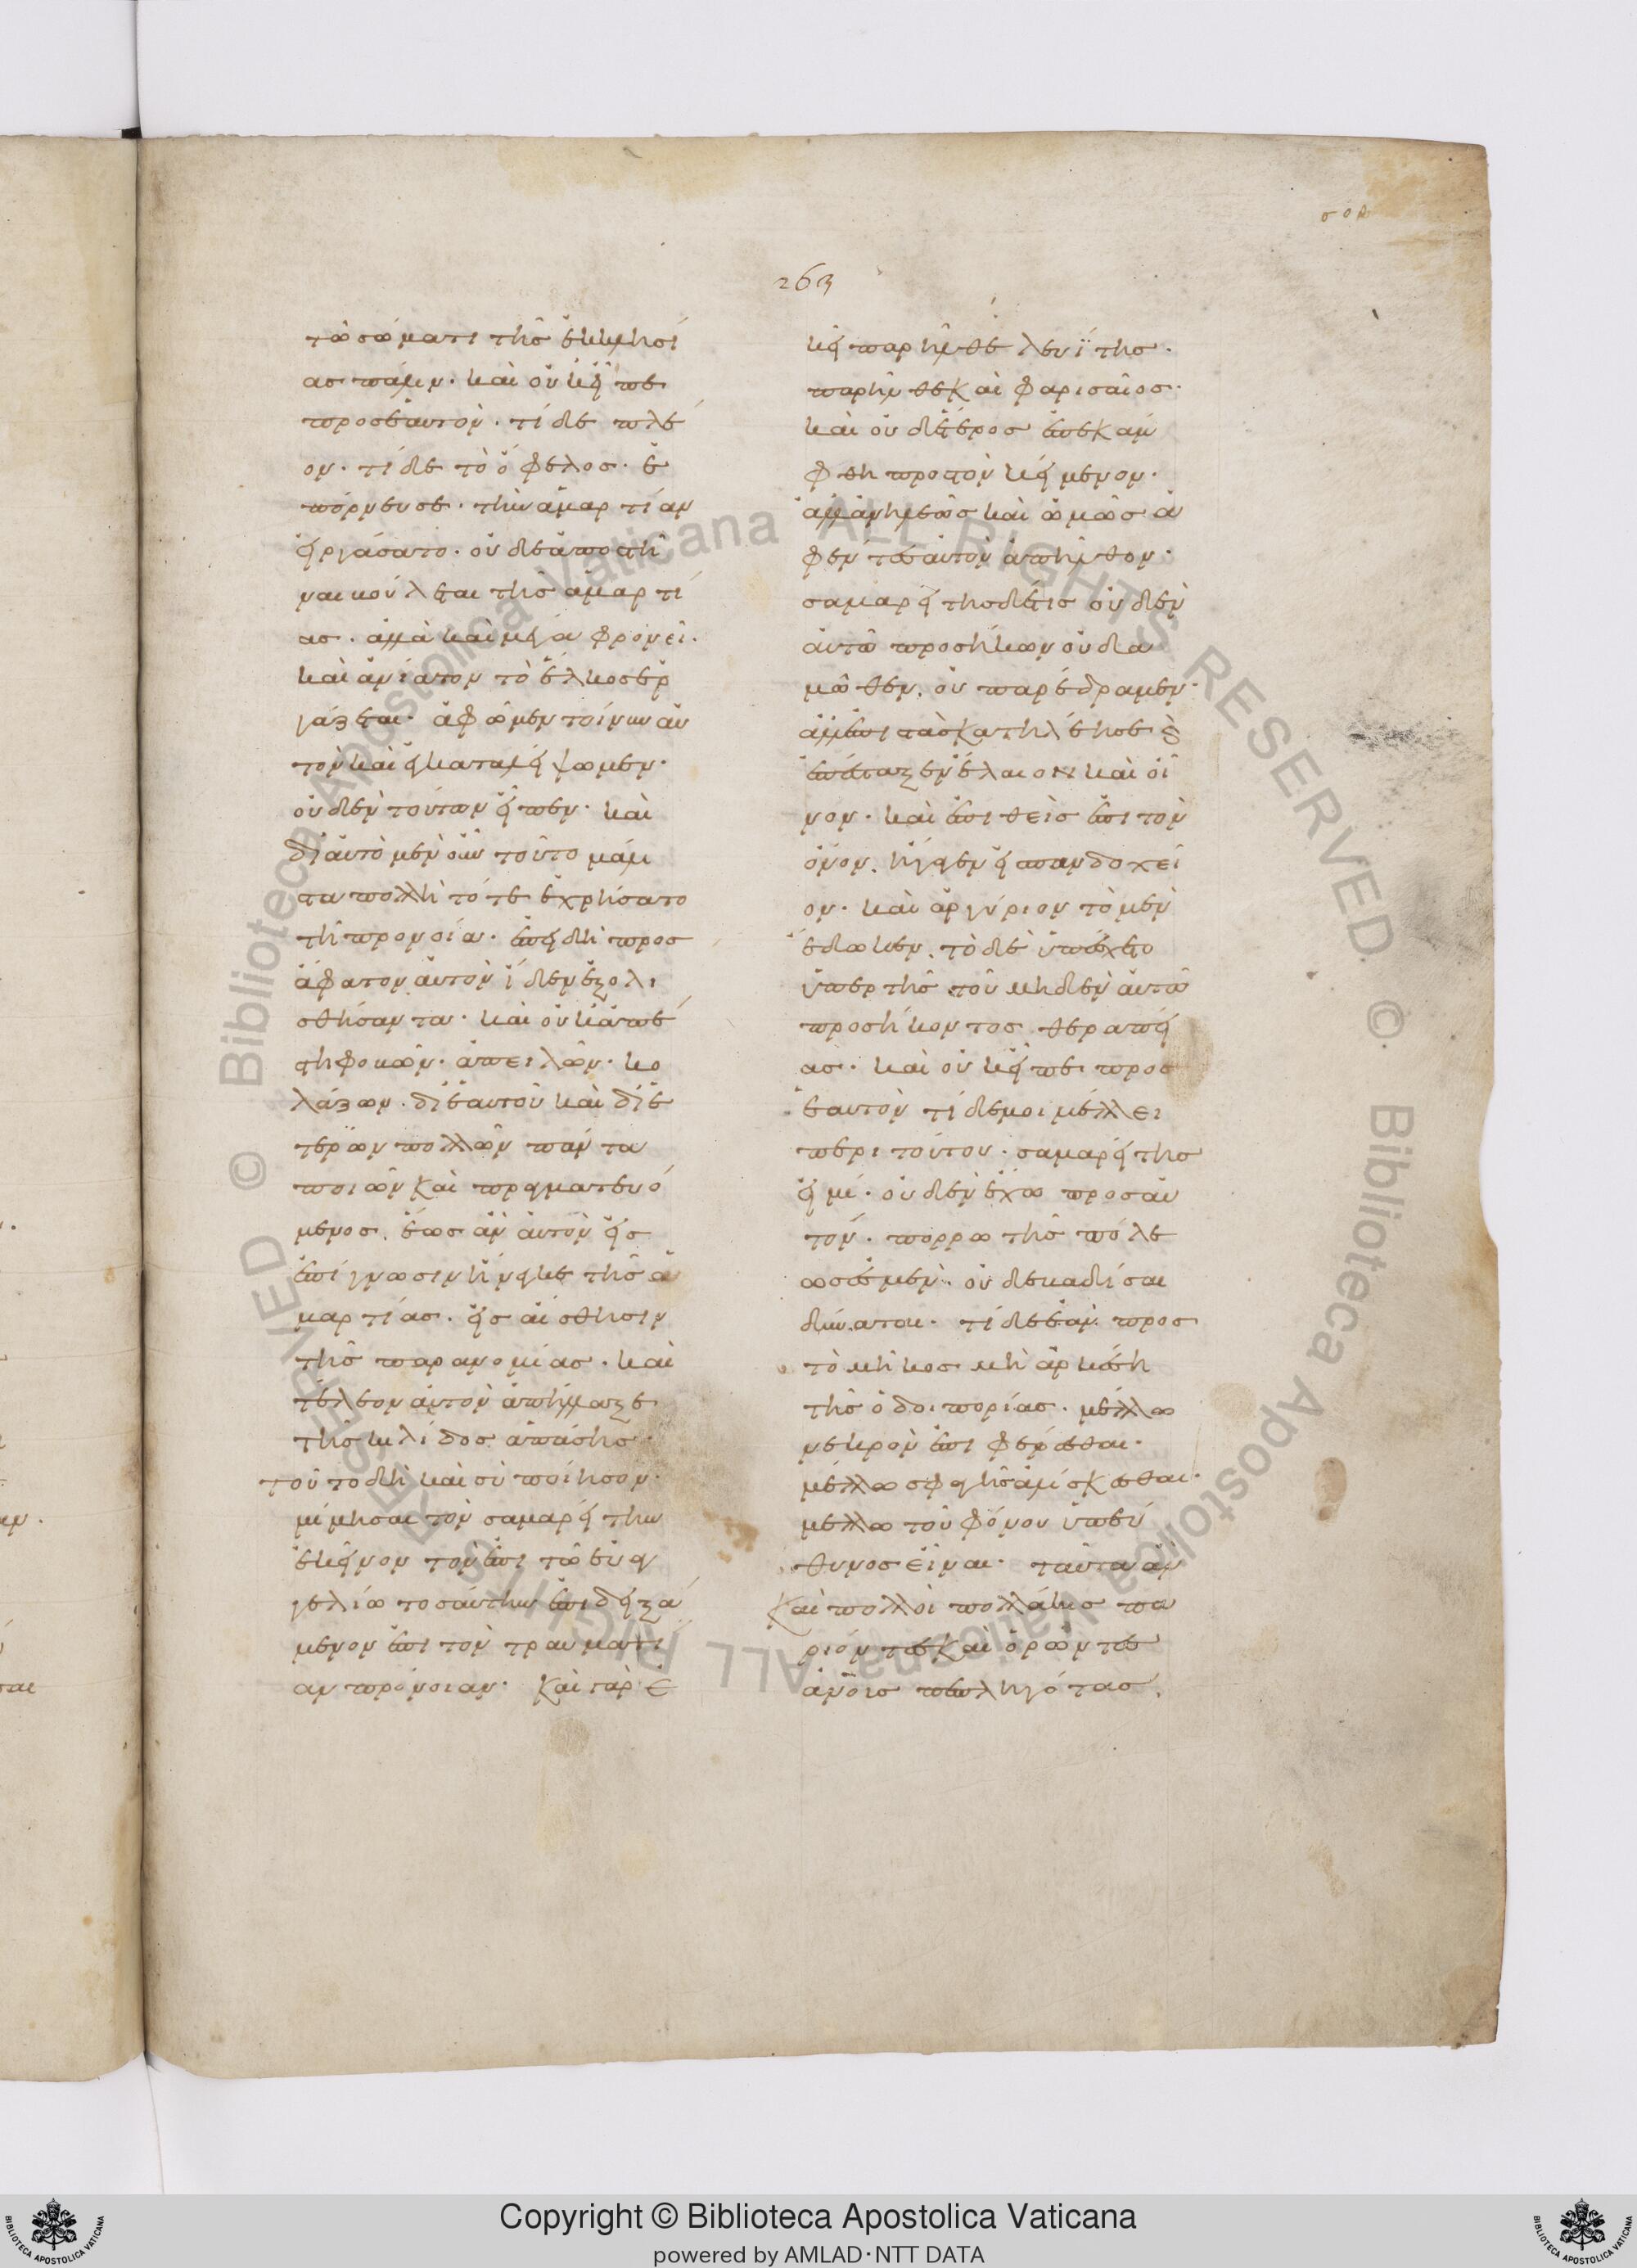 σοβ
263
τῶ σώματι τῆς ἐκκλησί
ας πάλιν· καὶ οὐκ εἶπε
πρὸς ἑαυτὸν· τί δὲ πλέ
ον· τί δὲ τὸ ὄφελος· ἐ
πόρνευσε· τὴν ἁμαρτίαν
εἰργάσατο· οὐδὲ ἀποστῆ
ναι βούλεται τῆς ἁμαρτί
ας· ἀλλὰ καὶ μέγα φρονεῖ·
καὶ ἀνίατον τὸ ἕλκος ἐρ
γάζεται· ἀφῶμεν τοίνυν αὐ
τὸν καὶ ἐγκαταλείψωμεν·
οὐδὲν τούτων εἶπεν· καὶ
δι' αὐτὸ μὲν οὖν τοῦτο μάλι
στα πολλῆ τότε ἐχρήσατο
τῆ προνοία· ἐπειδὴ πρὸς
ἄφατον αὐτὸν εἶδεν ἐξολι
σθήσαντα· καὶ οὐκ ἀπέ
στη φοβῶν· ἀπειλῶν· κο
λάζων· δι' ἑαυτοῦ καὶ δι' ἑ
τέρων πολλῶν πάντα
ποιῶν καὶ πραγματευό
μενος. ἕως ἂν αὐτὸν εἰς
ἐπίγνωσιν ἤνεγκε τῆς ἁ
μαρτίας· εἰς αἴσθησιν
τῆς παρανομίας· καὶ
τέλεον αὐτὸν ἀπήλλαξε
τῆς κηλίδος ἁπάσης·
τοῦτο δὴ καὶ σὺ ποίησον·
μίμησαι τὸν σαμαρείτην
ἐκεῖνον τὸν ἐπὶ τῶ εὐαγ
γελίω τοσαύτην ἐπιδειξά
μενον ἐπὶ τὸν τραυματί
αν πρόνοιαν· καὶ γὰρ ἐ
κεῖ παρῆλθε λευΐτης·
παρῆλθε καὶ φαρισαῖος·
καὶ οὐδέτερος ἐπεκάμ
φθη πρὸς τὸν κείμενον·
ἀλλ' ἀνηλεῶς καὶ ὠμῶς ἀ
φέντες αὐτὸν ἀπῆλθον·
σαμαρείτης δέ τις οὐδὲν
αὐτῶ προσήκων οὐδα
μόθεν. οὐ παρέδραμεν·
ἀλλ' ἐπιστὰς κατηλέησε καὶ
ἐπέσταξεν ἔλαιον καὶ οἶ
νον· καὶ ἐπιθεὶς ἐπὶ τὸν
ὄνον. ἤγαγεν εἰς πανδοχεῖ
ον· καὶ ἀργύριον τὸ μὲν
ἔδωκεν. τὸ δὲ ὑπέσχετο
ὑπὲρ τῆς τοῦ μηδὲν αὐτῶ
προσήκοντος θεραπεί
ας· καὶ οὐκ εἶπε πρὸς
ἑαυτὸν τί δέ μοι μέλλει
περὶ τούτου· σαμαρείτης
εἰμί· οὐδὲν ἔχω πρὸς αὐ
τόν· πόρρω τῆς πόλε
ώς ἐσμὲν· οὐδὲ βαδίσαι
δύναται· τί δὲ ἐὰν πρὸς
τὸ μῆκος μὴ ἀρκέση
τῆς ὁδοιπορίας· μέλλω
νεκρὸν ἐπιφέρεσθαι·
μέλλω σφαγῆς ἁλίσκεσθαι·
μέλλω τοῦ φόνου ὑπεύ
θυνος εἶναι· ταῦτα ἂν
καὶ πολλοὶ πολλάκις πα
ριόντες καὶ ὁρῶντες
ἀνοις πεπληγότας.
Copyright © Biblioteca Apostolica Vaticana
powered by AMLAD·NTT DATA